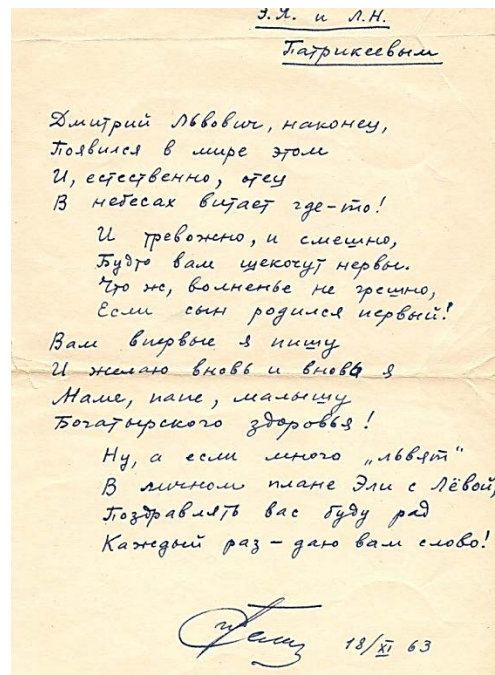 Э.Я. и Л.Н.
Патрикеевым
Дмитрий Львович, наконец,
Появился в мире этом
И, естественно, отец
В небесах витает где-то!
И тревожно, и смешно,
Будто вам щекочут нервы.
Что ж, волненье не грешно,
Если сын родился первый!
Вам впервые я пишу
И желаю вновь и вновь я
Маме, папе, малышу
Богатырского здоровья!
Ну, а если много „львят"
В личном плане Эли с Лёвой,
Поздравлять вас буду рад
Каждый раз – даю вам слово!
18/XI 63